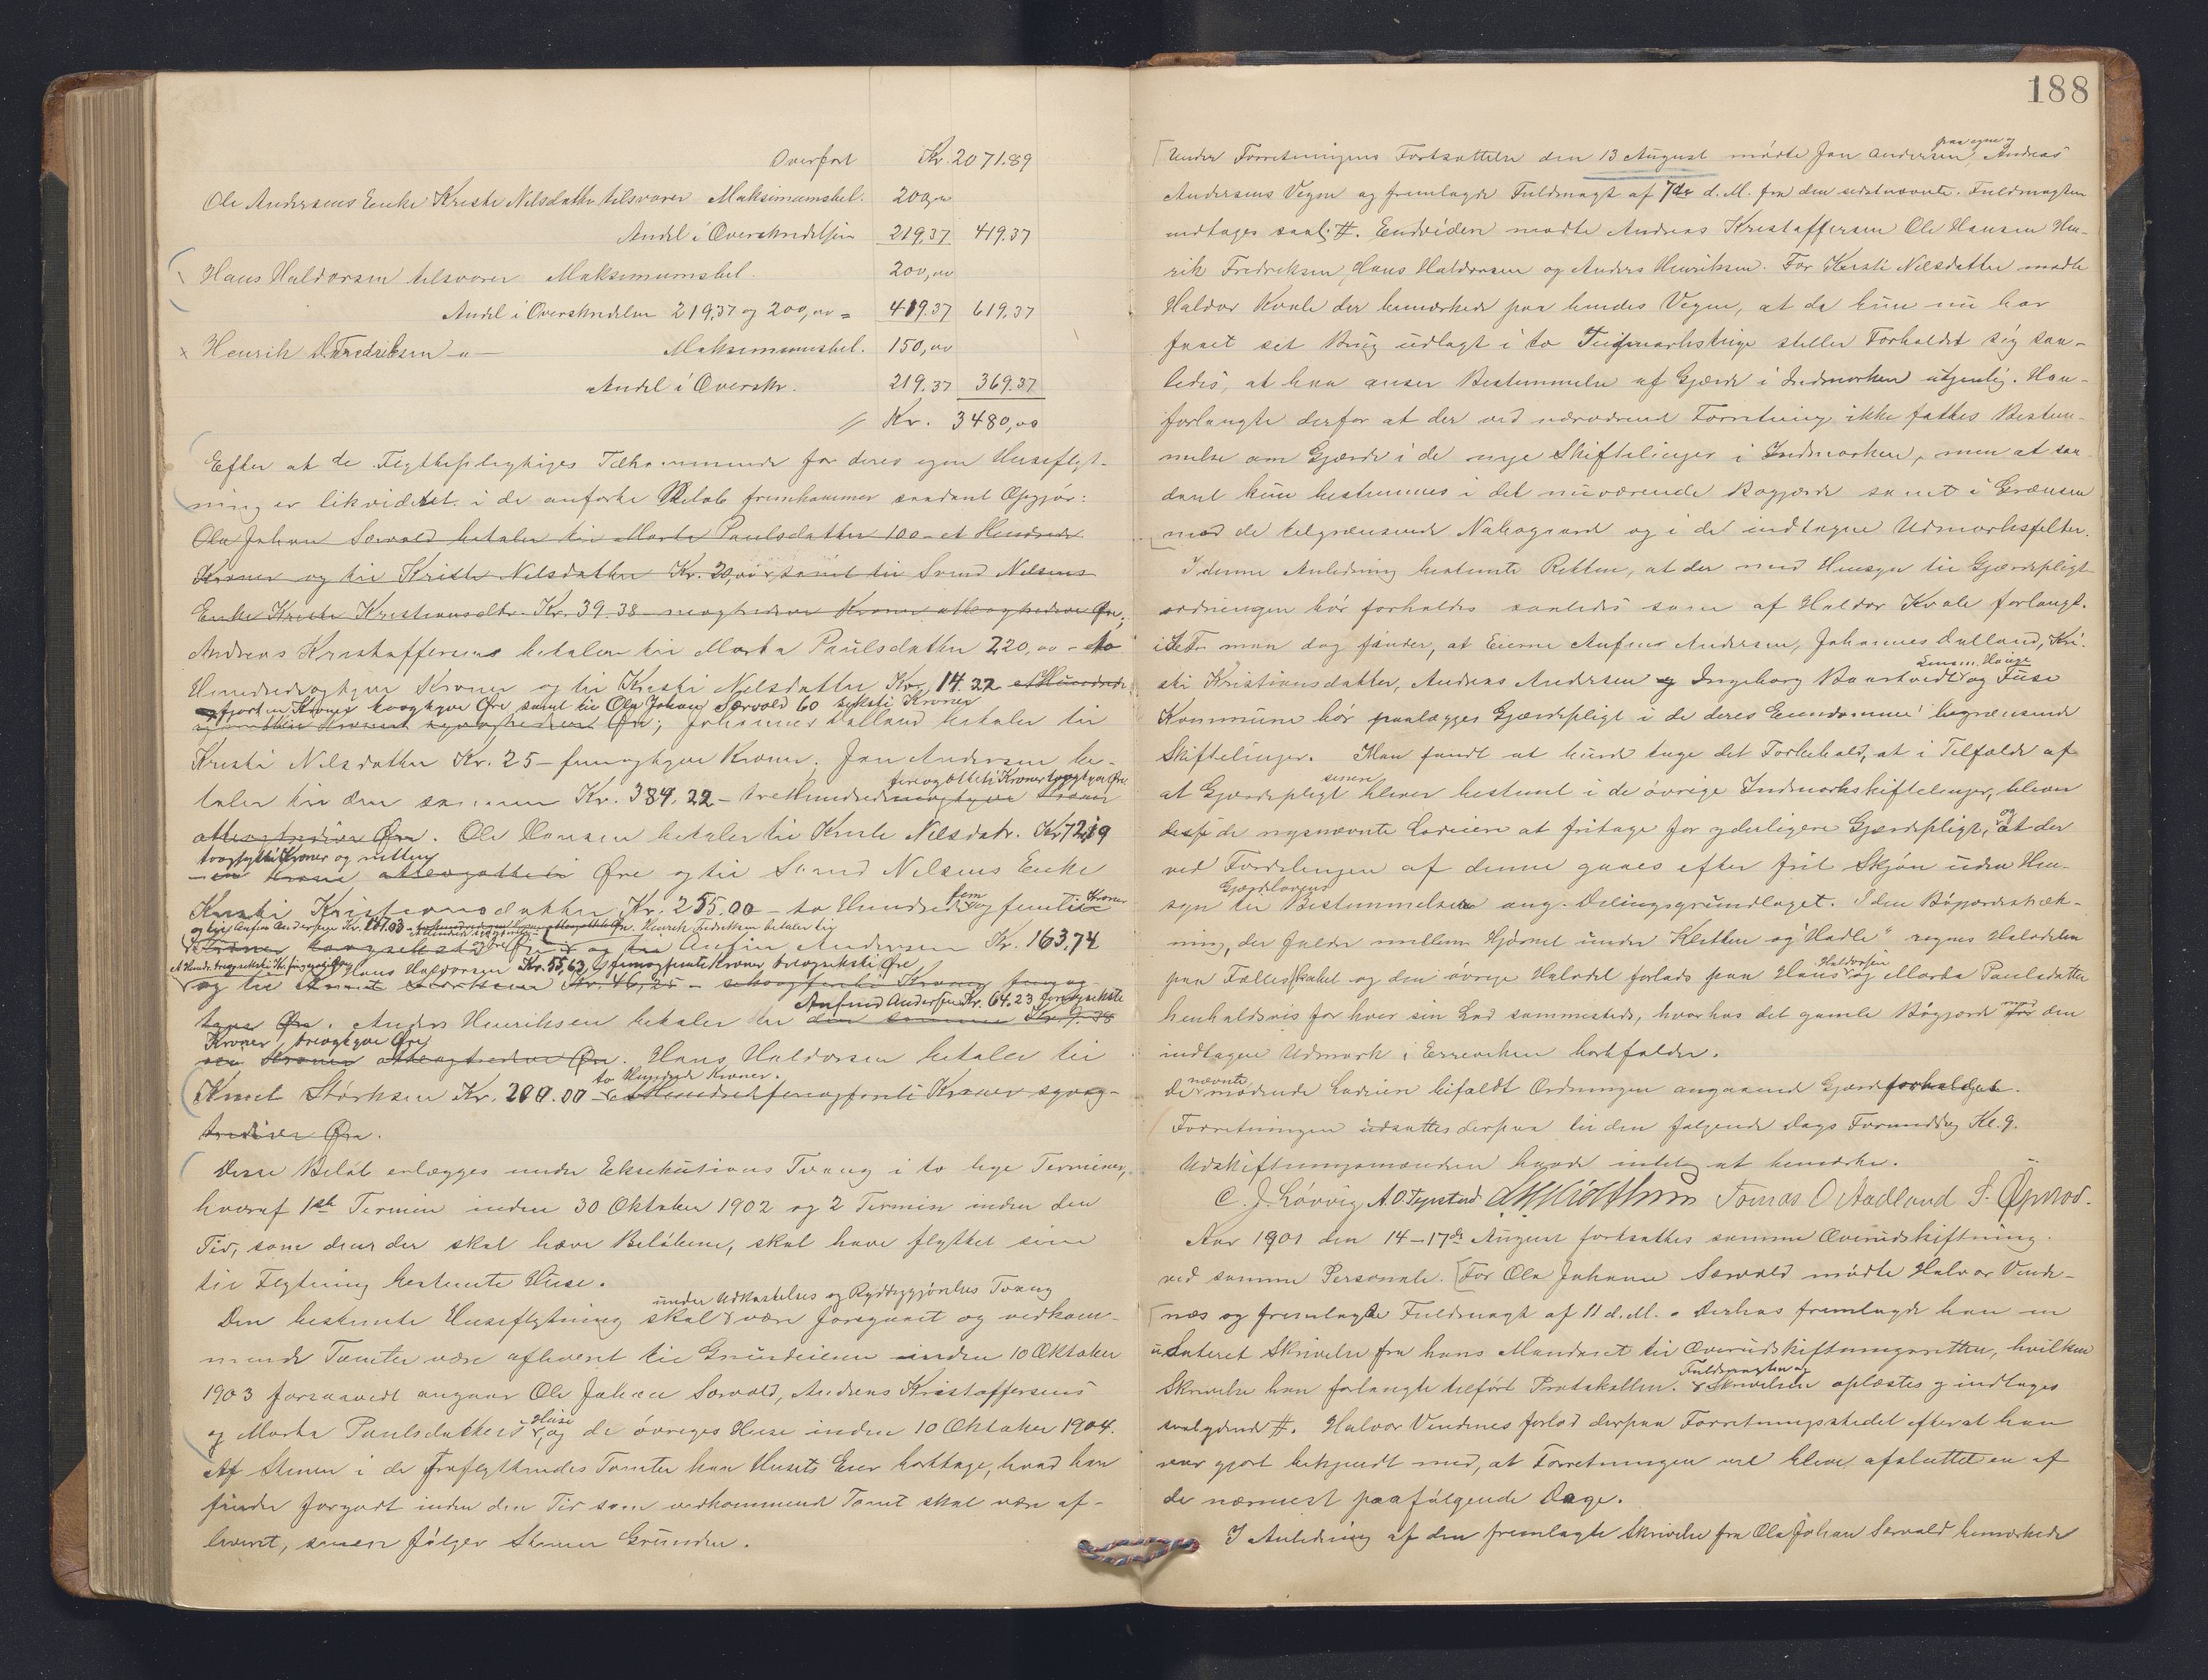 Overført Kr. 2071.89
Ole Andersens Enke Kristi Nilsdatter tilsvarer Maksimumsbel. 200,00
Andel i Overskridelsen 219,37 419.37
Hans Haldorsen tilsvarer Maksimumsbel. 200,00
Andel i Overskridelsen 219,37 og 200,00 = 419.37 619,37
Henrik Fredriksen -"- Maksimumsbel. 150,00
Andel i Overskr. 219,37 369.37
// Kr. 3480,00
Efter at de Flyttepligtiges Tilkommende for deres egen Huseflyt-
ning er likvideret i de anførte Beløb fremkommer saadant Opgjør:
Ola Johan Sørvold betaler til Marta Paulsdatter 100 - et Hundrede
Kroner og til Kristi Nilsdatter Kr. 20,00 samt til Svend Nilsens
Enke Kristi Kristiansdtr. Kr. 39.38 - niogtredive Kroner otteogtredive Øre;
Andreas Kristoffersens betaler til Marta Paulsdatter 220,00 - to
Hundredeogtyve Kroner og til Kristi Nilsdatter Kr. 14.22 et Hundrede
fjorten Kroner toogtyve Øre samt til Ola Johan Sørvold 60 seksti Kroner
Øre; Johannes Dalland betaler til
Kristi Nilsdatter Kr. 25 - femogtyve Kroner. Jon Andersen be-
fireogotteti Kroner toogtyve Øre
taler til den samme Kr. 384.22 - tre Hundrede niogtyve Kroner
otteogtredive Øre. Ole Hansen betaler til Kristi Nilsdatr. Kr. 72.19
toogsytti Kroner og nitten
en Krone otteogotteti Øre og til Svend Nilsens Enke
Kristi Kristiansdatter Kr. 255.00 - to Hundrede fem og femti Kroner
og til Anfin Andersen Kr. 167.03 Henrik Fredriksen betaler til
Kroner toogseksti Øre og til Anfin Andersen Kr. 163.74
et Hundr. treogseksti Kr. fireogsytti Øre Hans Haldorsen Kr. 55,63 femogfemti Kroner treogseksti Øre
og til Knut Størksen Kr. 46,25 - seksogfemti Kroner fem og
Anfind Andersen Kr. 64.23 fireogseksti
tyve Øre. Anders Henriksen betaler til den samme Kr. 9.38
Kroner, treogtyve Øre
ni Kroner otteogtredive Øre. Hans Haldorsen betaler til
to Hundrede Kroner.
Knut Størksen Kr. 200.00 - et Hundrede femogfemti Kroner syvog-
tredive Øre.
Disse Beløb erlægges under Eksekutions Tvang i to lige Terminer,
hvoraf 1ste Termin inden 30 Oktober 1902 og 2 Termin inden den
Tid, som den der skal hæve Beløbene, skal have flyttet sine
til Flytning bestemte Huse.
under Udkastelses og Ryddiggjørelses Tvang
Den bestemte Huseflytning skal være foregaaet og vedkom-
mende Tomter være afleveret til Grundeieren inden 10 Oktober
1903 forsaavidt angaar Ole Johan Sørvold, Andreas Kristoffersens
og Marta Paulsdatters Huse og de øvriges Huse inden 10 Oktober 1904.
Af Stenen i de fraflyttendes Tomter kan Husets Eier borttage, hvad han
finder forgodt inden den Tid som vedkommende Tomt skal være af-
leveret, senere følger Stenen Grunden.
188
Under Forretningens Fortsættelse den 13 August mødte Jon Andersen paa egne og Andreas
Andersens Vegne og fremlagde Fuldmagt af 7de d.M. fra den sidstnævnte. Fuldmagten
indtages saal. #. Endvidere mødte Andreas Kristoffersen Ole Hansen Hen-
rik Fredriksen, Hans Haldorsen og Anders Henriksen. For Kristi Nilsdatter mødte
Haldor Kvale der bemærkede paa hendes Vegne, at da hun nu har
faaet sit Brug udlagt i to Teigmarkstrige stiller Forholdet sig saa-
ledes, at han anser Bestemmelse af Gjærde i Indmarken utjenlig. Han
forlangte derfor at der ved nærværende Forretning ikke fattes Bestem-
melse om Gjærde i de nye Skiftelinjer i Indmarken, men at saa-
dant kun bestemmes i det nuværende Bøgjærde samt i Grænsen
mod de tilgrænsende Nabogaard og i de indtagne Udmarksfelter.
I denne Anledning bestemte Retten, at der med Hensyn til Gjærdepligt-
ordningen bør forholdes saaledes som af Haldor Kvale forlangt.
idet man dog finder, at Eierne Anfinn Andersen, Johannes Dalland, Kri-
sti Kristiansdatter, Andreas Andersen og Ingeborg Baarstvedt Lensm. Hauge og Fuse
Kommune bør paalægges Gjærdepligt i de deres Eiendomme begrænsende
Skiftelinjer. Man fandt at burde tage det Forbehold, at i Tilfælde af
at Gjærdepligt senere bliver bestemt i de øvrige Indmarkskiftelinjer, bliver
disse de nysnævnte Lodeiere at fritage for yderligere Gjærdepligt, og at der
ved Fordelingen af denne gaaes efter frit Skjøn uden Hen-
syn til Gjærdelovens Bestemmelser ang. Delingsgrundlaget. I den Bøgjærdestræk-
ning, der falder mellem Hjørnet under Kletten og "Hadle" regnes Halvdelen
paa Fællesskabet og den øvrige Halvdel forlods paa Hans Haldorsen og Marta Paulsdatter
henholdsvis for hver sin Lod sammesteds, hvorhos det gamle Bøgjærde mod den
indtagne Udmark i Erreviken bortfalder.
De nævnte mødende Lodeiere bifaldt Ordningen angaaende Gjærdeforholdet.
Forretningen udsattes derpaa til den følgende Dags Formiddag Kl. 9.
Udskiftningsmændene havde intet at bemærke.
C. J. Løvvig A.O. Teigstad Tomas O Aadland S. Øpstad.
Aar 1901 den 14-17de August fortsattes samme Overudskiftning.
ved samme Personale. For Ola Johann Sørvold mødte Halvor Vinde-
næs og fremlagde Fuldmagt af 11 d.M. Derhos fremlagde han en
udateret Skrivelse fra hans Mandant til Overudskiftningsretten, hvilken
Skrivelse han forlangte tilført Protokollen. Fuldmagten og Skrivelsen oplæstes og indtages
saalydende #. Halvor Vindenes forlod derpaa Forretningsstedet efterat han
var gjort bekjendt med, at Forretningen vil blive afsluttet en af
de nærmest paafølgende Dage.
I Anledning af den fremlagte Skrivelse fra Ola Johan Sørvold bemærkede